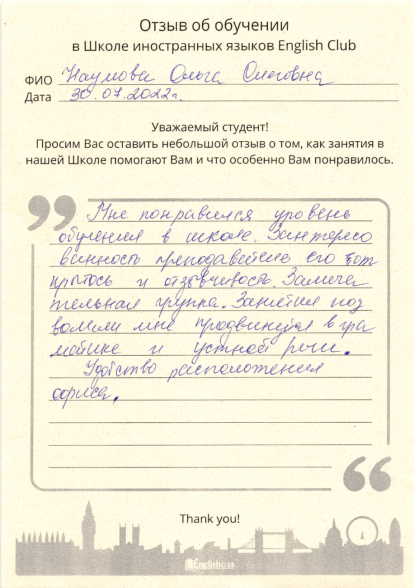 Отзыв об обучении
в Школе иностранных языков English Club
ФИО Наумова Ольга Олеговна
Дата 30.07.2022г.
Уважаемый студент!
Просим Вас оставить небольшой отзыв о том, как занятия в
нашей Школе помогают Вам и что особенно Вам понравилось.
Мне понравился уровень
обучения в школе. Заинтересо
ванность преподавателя его от
крытось и отзывчивость. Замеча
тельная группа. Занятия поз
волили мне продвинутся в гра
матике и устной речи.
Удобство расположения
офиса.
Thank you!
EnglishClub